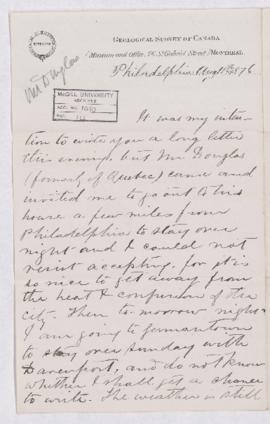 GEOLOGICAL SURVEY OF CANADA
Museum and Office, 76 St. Gabriel Street, MONTREAL
Philadelphia Aug 1876
Mr Douglas
McGILL UNIVERSITY
ARCHIVES
ACC. NO.
REF.
It was my inten-
tion to write you a long letter
this evening, but Mr Douglas
(formerly of Quebec) came and
invited me to go out to his
house a few miles from
Philadelphia to stay over
night and I could not
resist accepting, for it is
so nice to get away from
the heat & confusion of the
city. Then to-morrow night
I am going to Germantown
to stay over Sunday with
Davenport, and do not know
whether I shall get a chance
to write. The weather is still